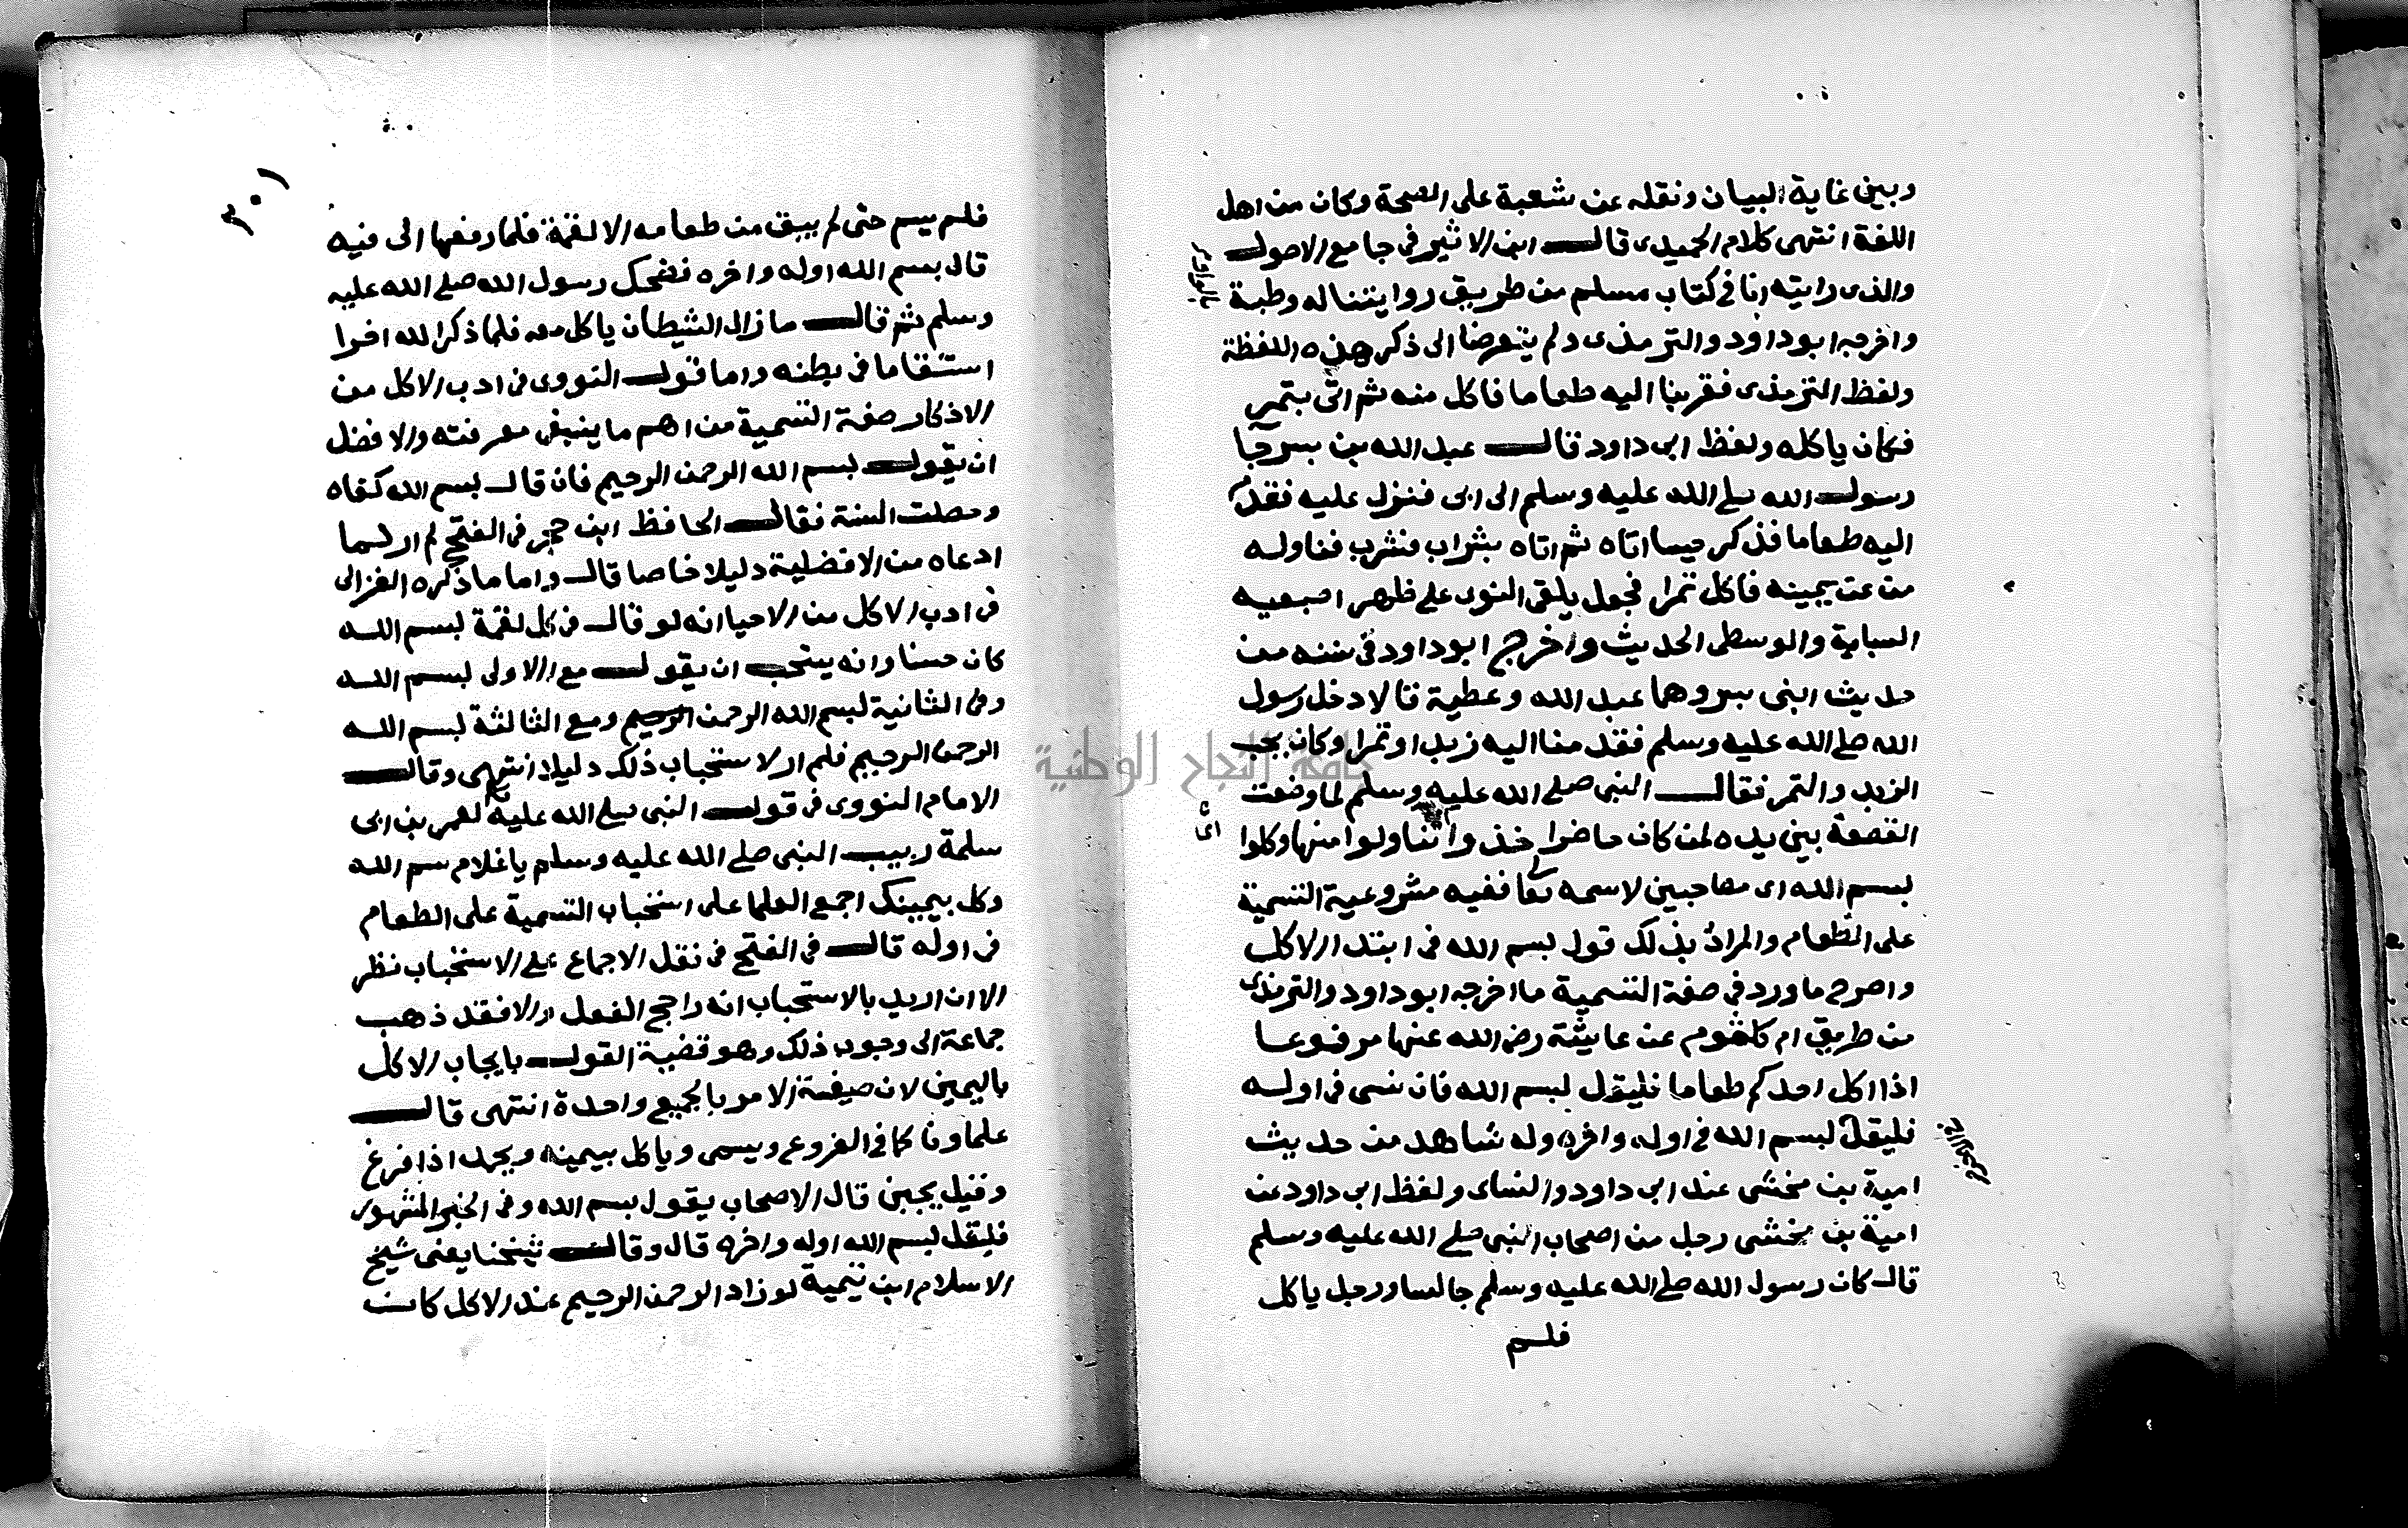 وبين غاية البيان ونقله عن شعبة على الصحة وكان من اهل
اللغة انتهى كلام الحميدى قال ابن الاثير فى جامع الاصول
والذى رايته انا فى كتاب مسلم من طريق روايتنا له وطبة
بالواو
واخرجه ابو داود والترمذى ولم يتعرضا الى ذكر هذه اللفظة
ولفظ الترمذى فقربنا اليه طعاما فاكل منه ثم اتى بتمر
فكان ياكله ولفظ ابى داود قال عبد الله بن بسر جا
رسول الله صلى الله عليه وسلم الى ابى فنزل عليه فقدم
اليه طعاما فذكر حيسا اتاه ثم اتاه بشراب فشرب فناوله
من عن يمينه فاكل تمرا فجعل يلقى النوى على ظهر اصبعيه
السبابة والوسطى الحديث واخرج ابو داود فى سننه من
حديث ابنى بسر وهما عبد الله وعطية قالا دخل رسول
الله صلى الله عليه وسلم فقدمنا اليه زبدا وتمرا وكان يحب
الزبد والتمر فقال النبى صلى الله عليه وسلم لما وضعت
القصعة بين يده لمن كان حاضرا خذوا تناولوا منها وكلوا
اى
بسم الله اى مصاحبين لاسمه تعا ففيه مشروعية التسمية
على الطعام والمراد بذلك قول بسم الله فى ابتدا الاكل
واصرح ما ورد فى صفة التسمية ما اخرجه ابو داود والترمذى
من طريق ام كلثوم عن عايشة رضى الله عنها مرفوعا
اذا اكل احدكم طعاما فليقل بسم الله فان نسى فى اوله
فليقل بسم الله فى اوله واخره وله شاهد من حديث
امية بن مخشى عند ابى داود والنساى ولفظ ابى داود عن
امية بن مخشى رجل من اصحاب النبى صلى الله عليه وسلم
قال كان رسول الله صلى الله عليه وسلم جالسا ورجل ياكل
فلم
٣٠١
فلم يسم حتى لم يبق من طعامه الا لقمة فلما رفعها الى فيه
قال بسم الله اوله واخره فضحك رسول الله صلى الله عليه
وسلم ثم قال ما زال الشيطان ياكل معه فلما ذكر الله
استقا ما فى بطنه واما قول النووى فى ادب الاكل من
الاذكار صفة التسمية من اهم ما ينبغى معرفته والافضل
ان يقول بسم الله الرحمن الرحيم فان قال بسم الله كفاه
وحصلت السنة فقال الحافظ ابن حجر فى الفتح لم ار لما
ادعاه من الافضلية دليلا خاصا قال واما ما ذكره الغزالى
فى ادب الاكل من الاحيا انه لو قال فى كل لقمة بسم الله
كان حسنا وانه يستحب ان يقول مع الاولى بسم الله
وفى الثانية بسم الله الرحمن الرحيم ومع الثالثة بسم الله
الرحمن الرحيم فلم ار لاستحباب ذلك دليلا انتهى وقال
الامام النووى فى قول النبى صلى الله عليه لعمر بن ابى
سلمة ربيب النبى صلى الله عليه وسلم يا غلام سم الله
وكل بيمينك اجمع العلما على استحباب التسمية على الطعام
فى اوله قال فى الفتح فى نقل الاجماع على الاستحباب نظر
الا ان اريد بالاستحباب انه راجح الفعل والا فقد ذهب
جماعة الى وجوب ذلك وهو قضية القول بايجاب الاكل
باليمين لان صيغة الامر بالجميع واحدة انتهى قال
علماونا كما فى الفروع ويسمى وياكل بيمينه ويحمد اذا فرغ
وقيل يجبن قال الاصحاب يقول بسم الله وفى الخبر المشهور
فليقل بسم الله اوله واخره قال وقال شيخنا يعنى شيخ
الاسلام ابن تيمية لو زاد الرحمن الرحيم عند الاكل كان
جامعة النجاح الوطنية